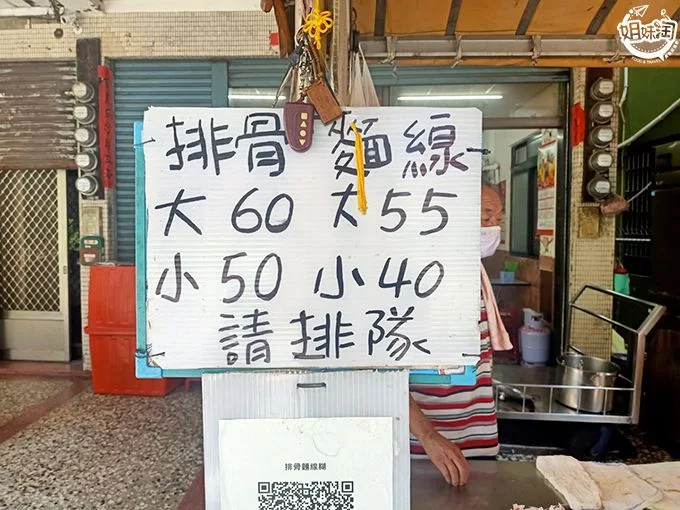 姐妹淘
FOOD & TRAVEL
排骨 麵線
大 60 大 55
小 50 小 40
請排隊
排骨麵線糊